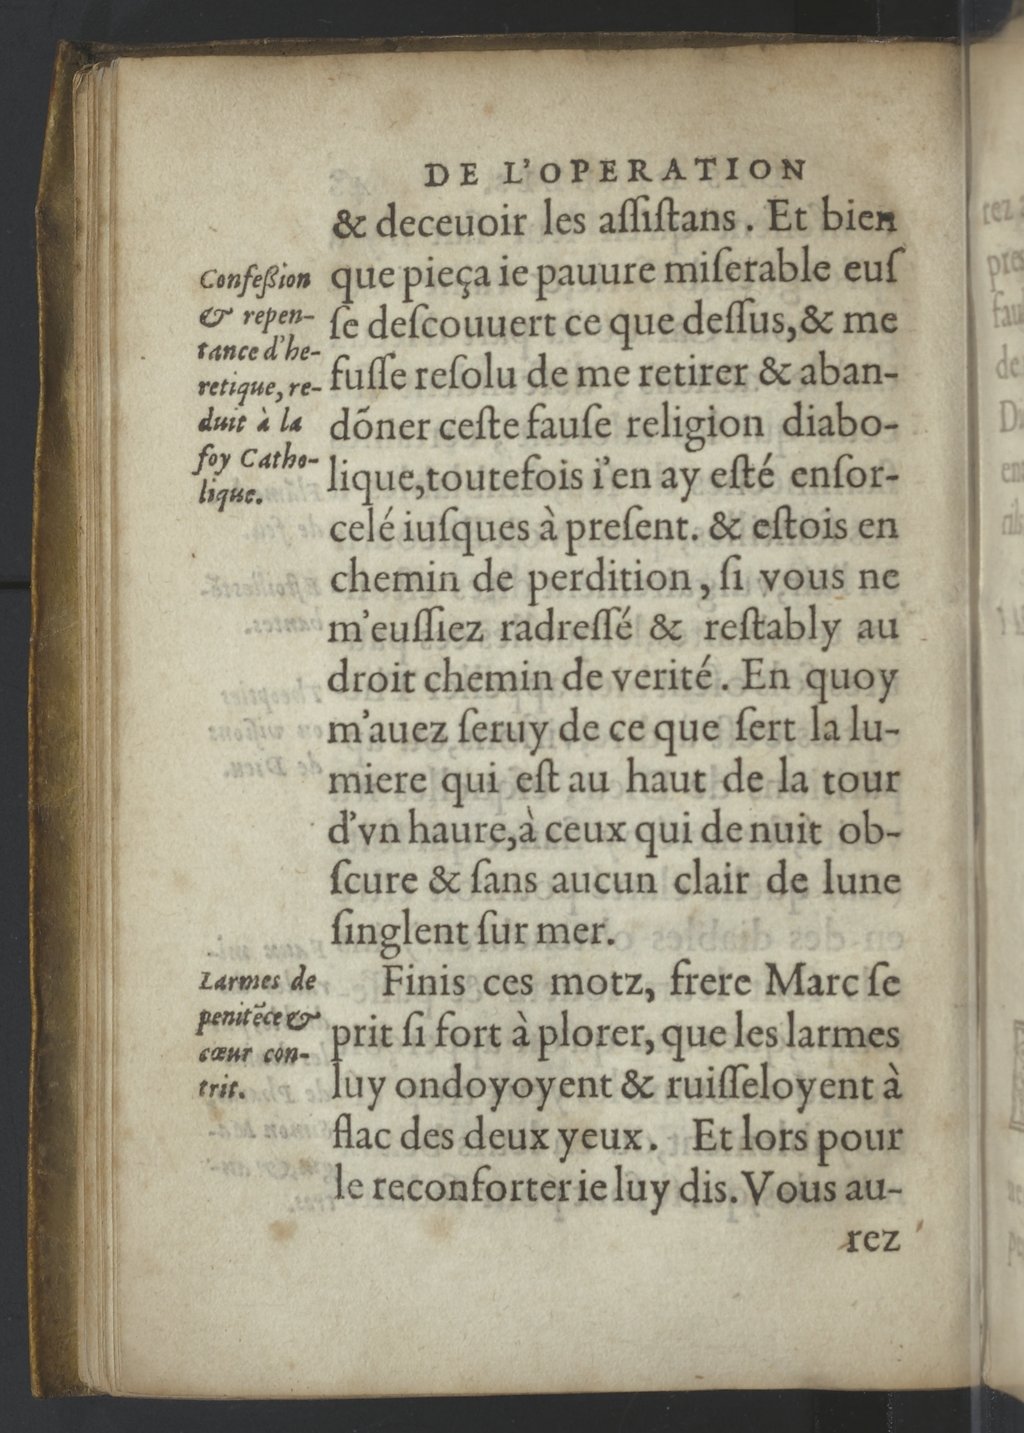 DE L'OPERATION
& deceuoir les aſſiſtans. Et bien
que pieça ie pauure miſerable euſ
ſe deſcouuert ce que deſſus, & me
fuſſe reſolu de me retirer & aban-
dõner ceſte fauſe religion diabo-
lique, toutefois i'en ay eſté enſor-
celé iuſques à preſent. & eſtois en
chemin de perdition, ſi vous ne
m'euſſiez radreſſé & reſtably au
droit chemin de verité. En quoy
m'auez ſeruy de ce que ſert la lu-
miere qui eſt au haut de la tour
d'vn haure, à ceux qui de nuit ob-
ſcure & ſans aucun clair de lune
ſinglent ſur mer.
Finis ces motz, frere Marc ſe
prit ſi fort à plorer, que les larmes
luy ondoyoyent & ruiſſeloyent à
flac des deux yeux. Et lors pour
le reconforter ie luy dis. Vous au-
rez
Confeßion
& repen-
tance d'he-
retique, re-
duit à la
foy Catho-
lique.
Larmes de
penitẽce &
cœur con-
trit.